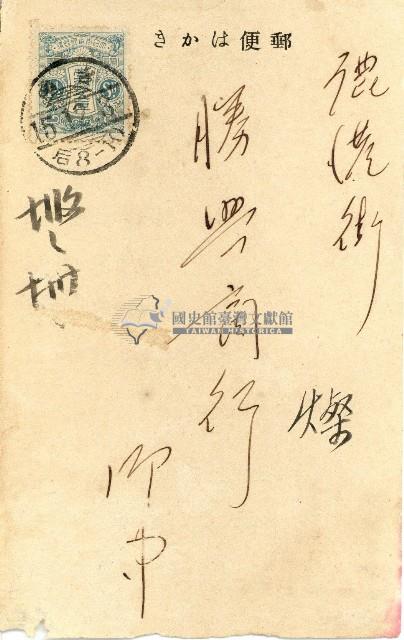 郵便はかき
鹿港街
勝興商行
御中
燦
國史館臺灣文獻館
TAIWAN HISTORICA
后8-10